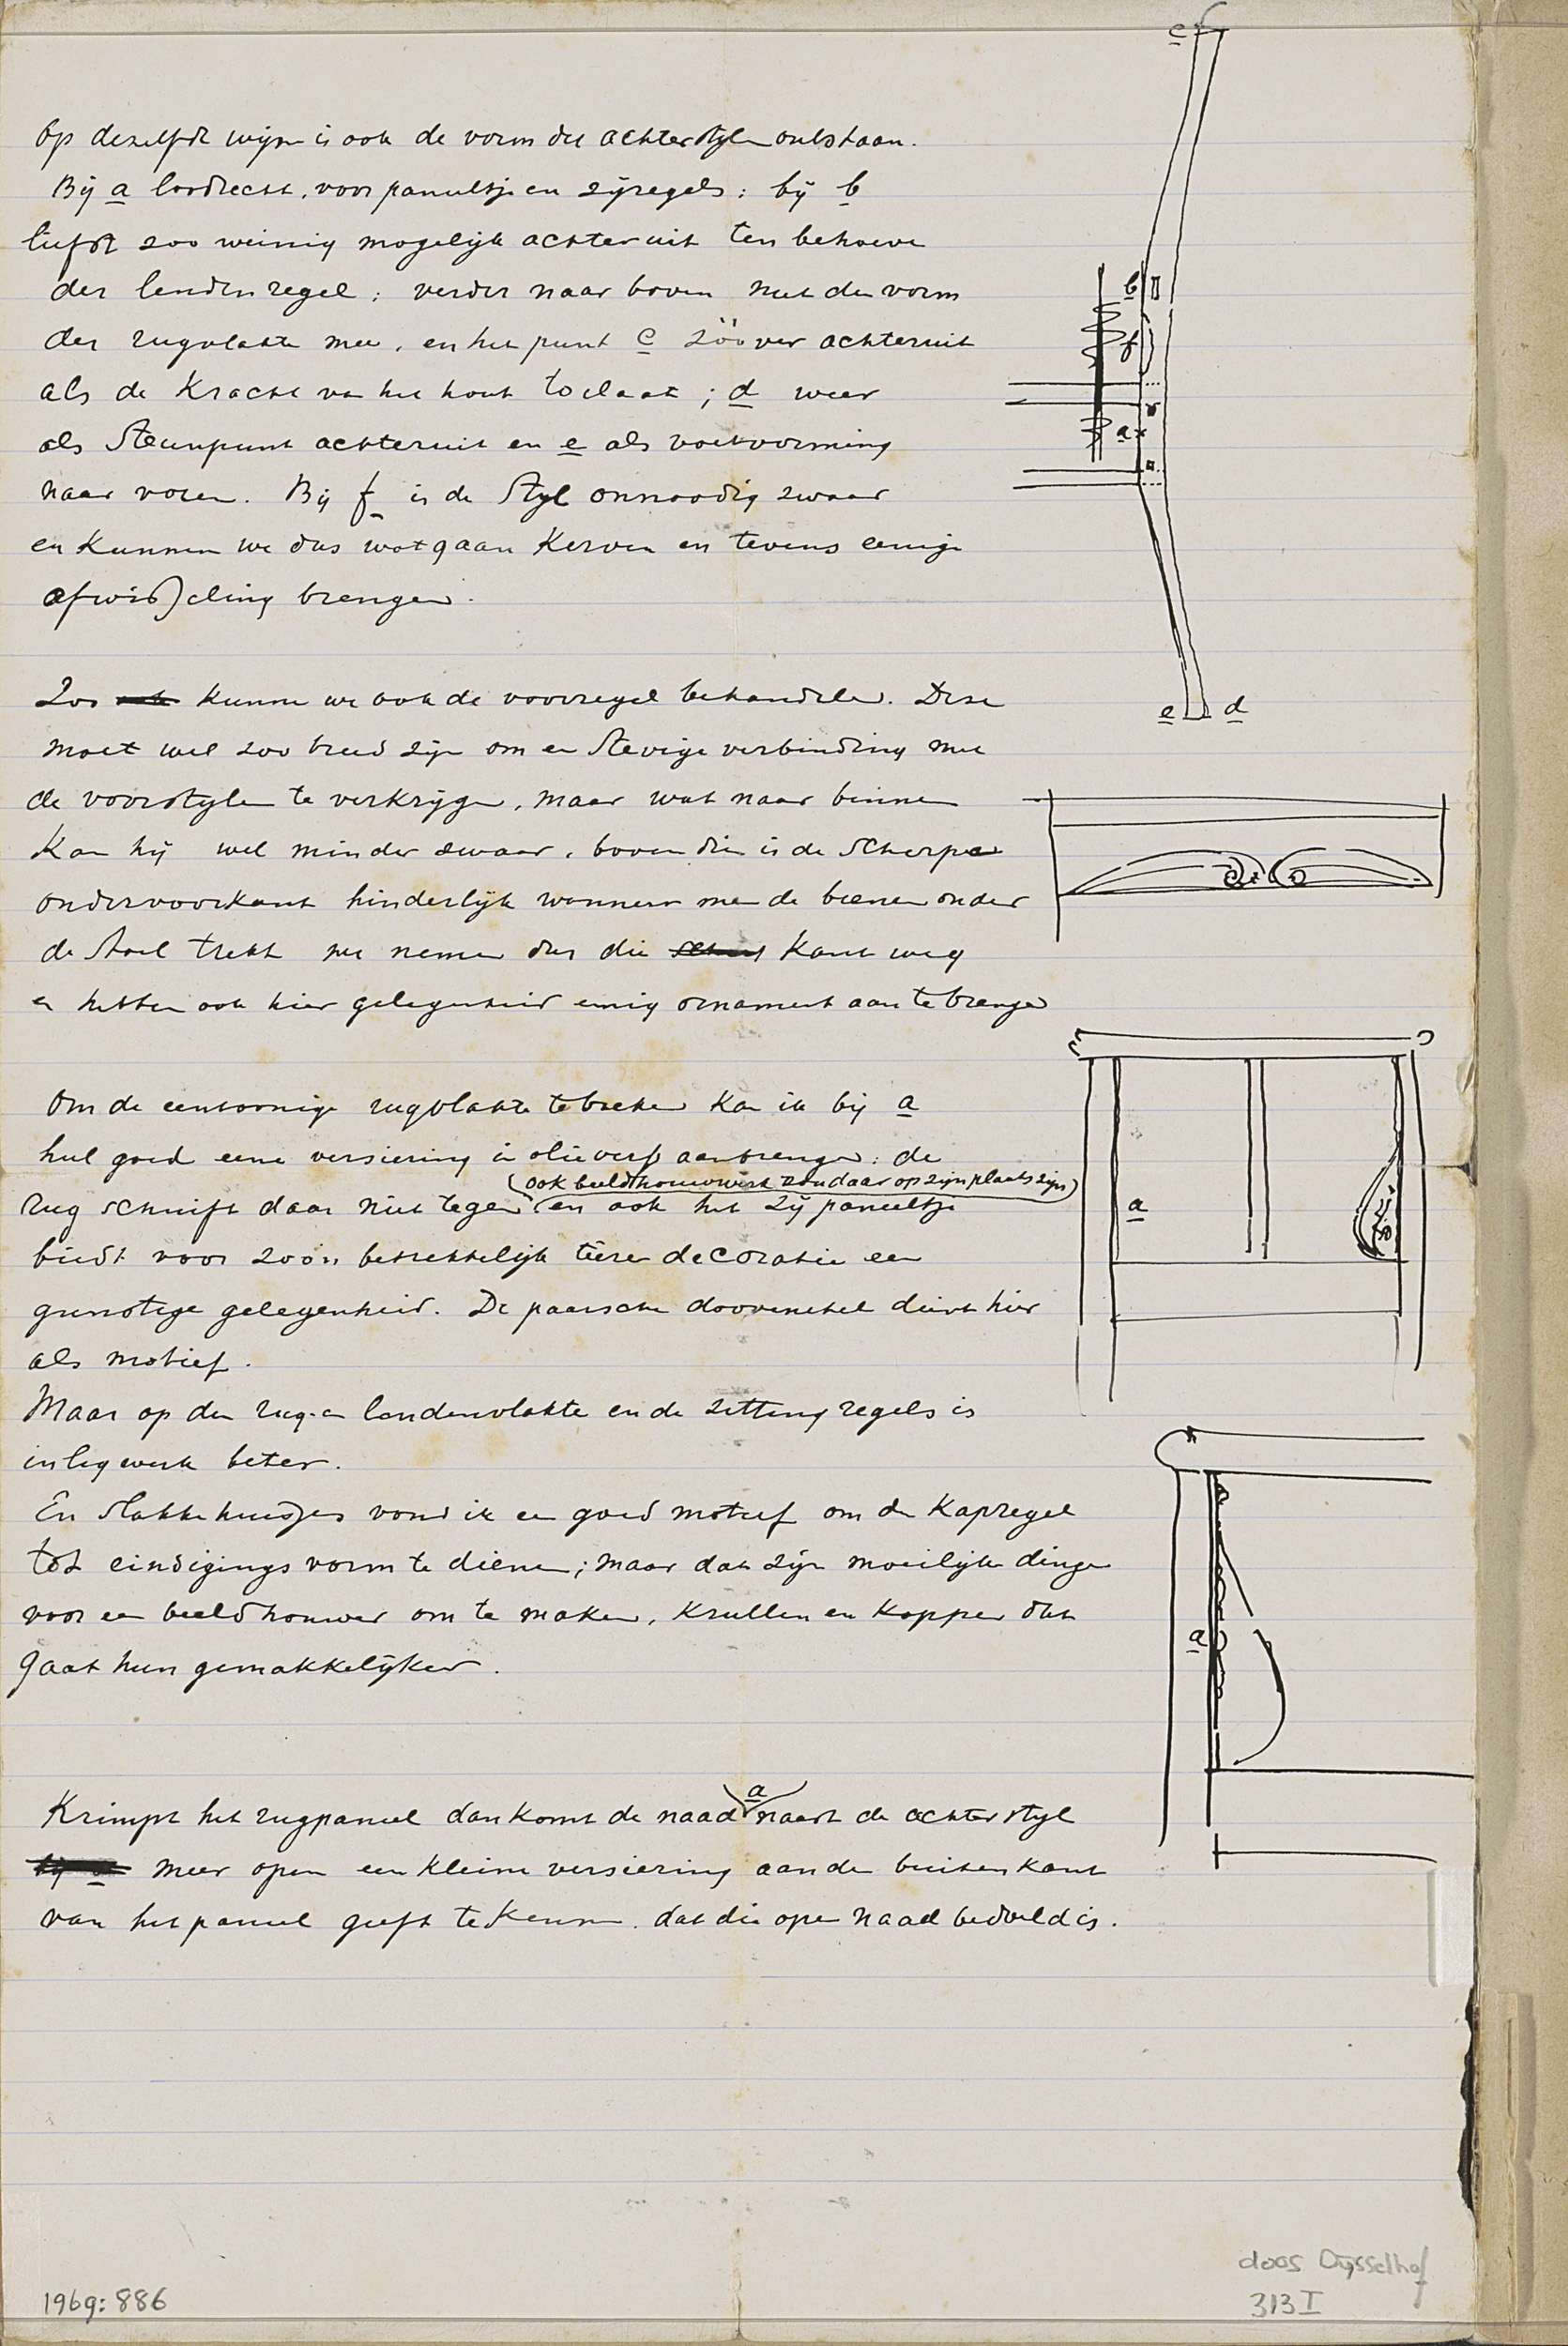 Op dezelfde wijze is ook de vorm der achterstylen ontstaan.
Bij a loodrecht, voor paneeltje en zijregels; bij b
liefst zoo weinig mogelijk achteruit ten behoeve
der lendenregel; verder naar boven met den vorm
der rugvlakte mee, en het punt c zóóver achteruit
als de Kracht van het hout toelaat; d weer
als Steunpunt achteruit en e als voetvorming
naar voren. Bij f is de Styl onnoodig zwaar
en Kunnen we dus wat gaan Kerven en tevens eenige
afwisseling brengen.
Zoo kunnen we ook de voorregel behandelen. Deze
moet wel zoo breed zijn om een Stevige verbinding met
de voorstylen te verkrijgen, maar wat naar binnen
Kan hij wel minder zwaar, bovendien is de Scherpe
ondervoorkant hinderlijk wanneer men de beenen onder
de Stoel trekt we nemen dus die Kant weg
en hebben ook hier gelegenheid eenig ornament aan te brengen
Om de eentoonige rugvlakte te breken Kan ik bij a
heel goed eene versiering in olieverf aanbrengen: de
(ook beeldhouwwerk zou daar op zijn plaats zijn)
rug schuift daar niet tegen en ook het zij paneeltje
biedt voor zoo'n betrekkelijk teere decoratie een
gunstige gelegenheid. De paarsche doovenetel dient hier
als motief.
Maar op den rug- en lendenvlakte en de zitting regels is
inleg werk beter.
En Slakkehuisjes vond ik een goed motief om den Kapregel
tot eindigings vorm te dienen; maar dat zijn moeilijke dingen
voor een beeldhouwer om te maken, Krullen en Koppen dat
gaat hun gemakkelijker.
Krimpt het rugpaneel dan komt de naad a naast de achterstyl
meer open een Kleine versiering aan den buitenkant
van het paneel geeft te Kennen dat die open naad bedoeld is.
c
b
f
a
e d
a
a
doos Dijsselhof
313 I
1969:886